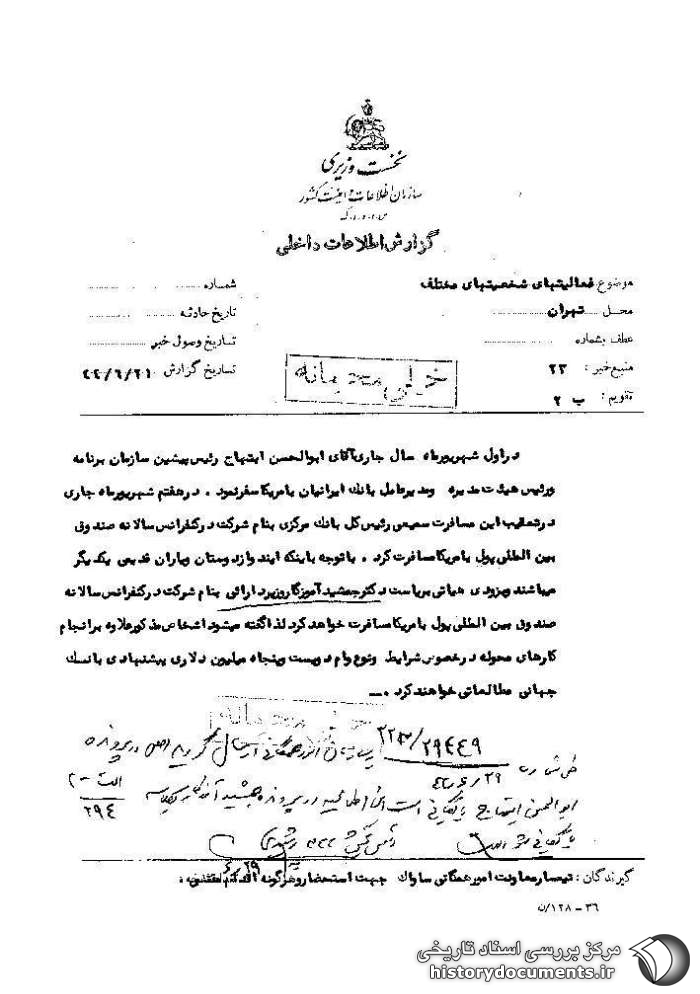 نخست وزیری
سازمان اطلاعات و امنیت کشور
س.ا.و.ا.ک
گزارش اطلاعات داخلی
موضوع: فعالیتهای شخصیتهای مختلف
شماره
محل تهران
تاریخ حادثه
عطف بشماره
تاریخ وصول خبر
منبع خبر: ۲۳
تاریخ گزارش ۴۴/۶/۲۱
تقویم: ب ۲
خیلی محرمانه
در اول شهریورماه سال جاری آقای ابوالحسن ابتهاج رئیس پیشین سازمان برنامه
و رئیس هیئت مدیره و مدیرعامل بانک ایرانیان بامریکا سفر نمود . در هفتم شهریورماه جاری
در تعقیب این مسافرت سمیعی رئیس کل بانک مرکزی بنام شرکت در کنفرانس سالانه صندوق
بین المللی پول بامریکا مسافرت کرد . با توجه باینکه ایندو از دوستان و یاران قدیمی یکدیگر
میباشند و بزودی هیاتی بریاست دکتر جمشید آموزگار وزیر دارائی بنام شرکت در کنفرانس سالانه
صندوق بین المللی پول بامریکا مسافرت خواهد کرد لذا گفته میشود اشخاص مذکور علاوه بر انجام
کارهای محوله در خصوص شرایط و نوع وام دویست و پنجاه میلیون دلاری پیشنهادی بانک
جهانی مطالعاتی خواهند کرد .
خیلی محرمانه
۲۲۳/۲۹۴۴۹
در پرونده
ابوالحسن ابتهاج بایگانی است این اطلاعیه در پرونده جمشید آموزگار
۲۹۴
بایگانی شود
گیرندگان : تیمسار معاونت امور همگانی ساواک جهت استحضار و هرگونه اقدام مقتضی .
۳۶ – ۱۲۸/ن
مرکز بررسی اسناد تاریخی
historydocuments.ir